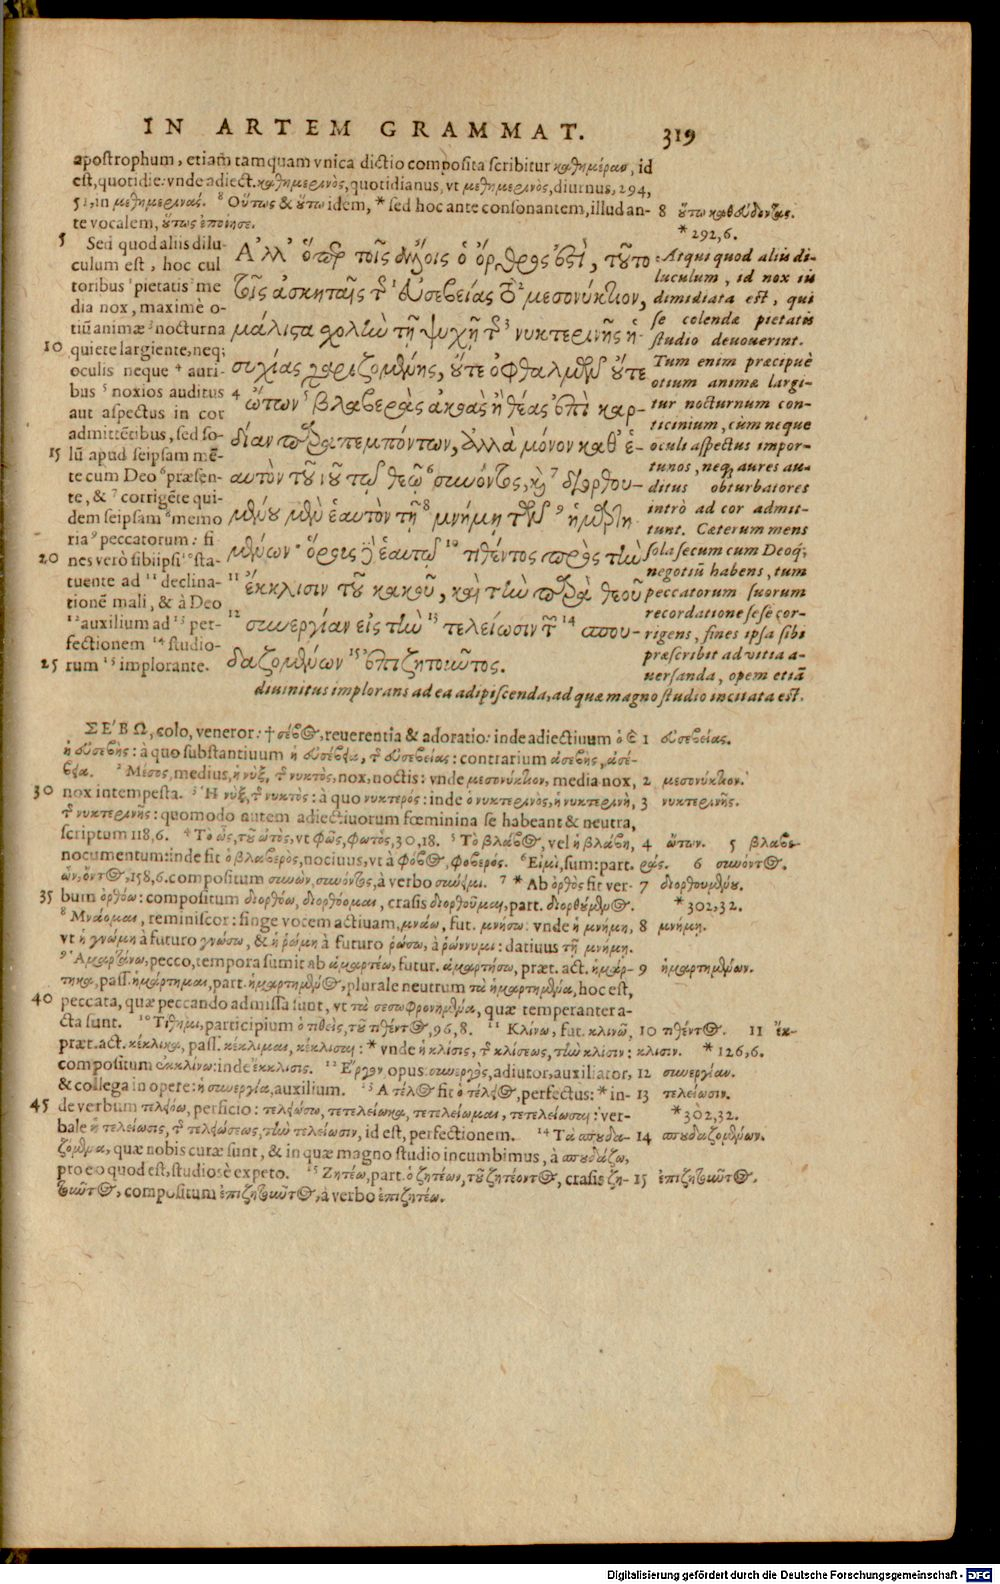 IN ARTEM GRAMMAT. 319
apostrophum, etiam tamquam vnica dictio composita scribitur καθημέραν, id
est, quotidie: vnde adiect. καθημερινὸς, quotidianus, vt μεθημερινὸς, diurnus, 294,
51, in μεθημερινας. 8 Οὕτως & οὕτω idem, * sed hoc ante consonantem, illud an-
te vocalem, οὕτως ἐποίησε.
8 οὕτω καθεύδοντας.
* 292, 6.
5 Sed quod aliis dilu-
culum est, hoc cul
toribus 1 pietatis 2 me
dia nox, maximè o-
tiũ animæ 3 nocturna
10 quiete largiente, neq;
oculis neque 4 auri-
bus 5 noxios auditus
aut aspectus in cor
admittẽtibus, sed so-
15 lũ apud seipsam mẽ-
te cum Deo 6 præsen-
te, & 7 corrigẽte qui-
dem seipsam 8 memo
ria 9 peccatorum: fi
20 nes verò sibiipsi 10 sta-
tuente ad 11 declina-
tionẽ mali, & à Deo
12 auxilium ad 13 per-
fectionem 14 studio-
25 rum 15 implorante.
Ἀλλ' ὅπερ τοῖς ἄλλοις ὁ ὄρθρος ἐστὶ, τοῦτο
τοῖς ἀσκηταῖς τῆς 1 εὐσεβείας τὸ 2 μεσονύκτιον,
μάλιστα σχολὴν τῇ ψυχῇ τῆς 3 νυκτερινῆς ἡ-
συχίας χαριζομένης, οὔτε ὀφθαλμῶν οὔτε
4 ὤτων 5 βλαβερὰς ἀκοὰς ἢ θέας ἐπὶ καρ-
δίαν παραπεμπόντων, ἀλλὰ μόνον καθ' ἑ-
αυτὸν τοῦ νοῦ τῷ θεῷ 6 συνόντος, καὶ 7 διορθου-
μένου μὲν ἑαυτὸν τῇ 8 μνήμῃ τῶν 9 ἡμαρτη
μένων· ὅρους δὲ ἑαυτῷ 10 τιθέντος πρὸς τὴν
11 ἔκκλισιν τοῦ κακοῦ, καὶ τὴν παρὰ θεοῦ
12 συνεργίαν εἰς τὴν 13 τελείωσιν τῶν 14 σπου-
δαζομένων 15 ἐπιζητοῦντος.
Atqui quod aliis di-
luculum, id nox iis
dimidiata est, qui
se colendæ pietatis
studio deuouerint.
Tum enim præcipuè
otium animæ largi-
tur nocturnum con-
ticinium, cùm neque
oculi aspectus impor-
tunos, neq; aures au-
ditus obturbatores
intrò ad cor admit-
tunt. Cæterum mens
sola secum cum Deoq;
negotiũ habens, tum
peccatorum suorum
recordatione sese cor-
rigens, fines ipsa sibi
præscribit ad vitia a-
uersanda, opem etiã
diuinitus implorans ad ea adipiscenda, ad quæ magno studio incitata est.
ΣΕ'ΒΩ, colo, veneror: † σέβος, reuerentia & adoratio: inde adiectiuum ὁ & 1 εὐσεβείας.
ἡ εὐσεβὴς: à quo substantiuum ἡ εὐσέβεια, τῆς εὐσεβείας: contrarium ἀσεβὴς, ἀσέ-
βεια. 2 Μέσος, medius, ἡ νὺξ, τῆς νυκτὸς, nox, noctis: vnde μεσονύκτιον, media nox, 2 μεσονύκτιον.
30 nox intempesta. 3 Ἡ νὺξ, τῆς νυκτὸς: à quo νυκτερός: inde ὁ νυκτερινὸς, ἡ νυκτερινὴ, 3 νυκτερινῆς.
τῆς νυκτερινῆς: quomodo autem adiectiuorum fœminina se habeant & neutra,
scriptum 118, 6. 4 Τὸ ὦς, τοῦ ὠτὸς, vt φῶς, φωτός, 30, 18. 5 Τὸ βλάβος, vel ἡ βλάβη, 4 ὤτων. 5 βλαβε-
nocumentum: inde fit ὁ βλαβερὸς, nociuus, vt à φόβος, φοβερός. 6 Εἰμὶ, sum: part. ρὰς. 6 συνόντος.
ὢν, ὄντος, 158, 6. compositum συνὼν, συνόντος, à verbo σύνειμι. 7 * Ab ὀρθὸς fit ver- 7 διορθουμένου.
35 bum ὀρθόω: compositum διορθόω, διορθόομαι, crasis διορθοῦμαι, part. διορθούμενος. * 302, 32.
8 Μνάομαι, reminiscor: finge vocem actiuam, μνάω, fut. μνήσω: vnde ἡ μνήμη, 8 μνήμῃ.
vt ἡ γνώμη à futuro γνώσω, & ἡ ῥώμη à futuro ῥώσω, à ῥώννυμι: datiuus τῇ μνήμῃ.
9 Ἁμαρτάνω, pecco, tempora sumit ab ἁμαρτέω, futur. ἁμαρτήσω, præt. act. ἡμάρ- 9 ἡμαρτημένων.
τηκα, pass. ἡμάρτημαι, part. ἡμαρτημένος, plurale neutrum τὰ ἡμαρτημένα, hoc est,
40 peccata, quæ peccando admissa sunt, vt τὰ σεσωφρονημένα, quæ temperanter a-
cta sunt. 10 Τίθημι, participium ὁ τιθεὶς, τοῦ τιθέντος, 96, 8. 11 Κλίνω, fut. κλινῶ, 10 τιθέντος. 11 ἔκ-
præt. act. κέκλικα, pass. κέκλιμαι, κέκλισαι: * vnde ἡ κλίσις, τῆς κλίσεως, τὴν κλίσιν: κλισιν. * 126, 6.
compositum ἐκκλίνω: inde ἔκκλισις. 12 Ἔργον, opus: συνεργὸς, adiutor, auxiliator, 12 συνεργίαν.
& collega in opere: ἡ συνεργία, auxilium. 13 Α τέλος fit ὁ τέλειος, perfectus: * in- 13 τελείωσιν.
45 de verbum τελειόω, perficio: τελειώσω, τετελείωκα, τετελείωμαι, τετελείωσαι: ver- * 302, 32.
bale ἡ τελείωσις, τῆς τελειώσεως, τὴν τελείωσιν, id est, perfectionem. 14 Τὰ σπουδα- 14 σπουδαζομένων.
ζόμενα, quæ nobis curæ sunt, & in quæ magno studio incumbimus, à σπουδάζω,
pro eo quod est, studiosè expeto. 15 Ζητέω, part. ὁ ζητέων, τοῦ ζητέοντος, crasis ζη- 15 ἐπιζητοῦντος.
τοῦντος, compositum ἐπιζητοῦντος, à verbo ἐπιζητέω.
Digitalisierung gefördert durch die Deutsche Forschungsgemeinschaft - DFG